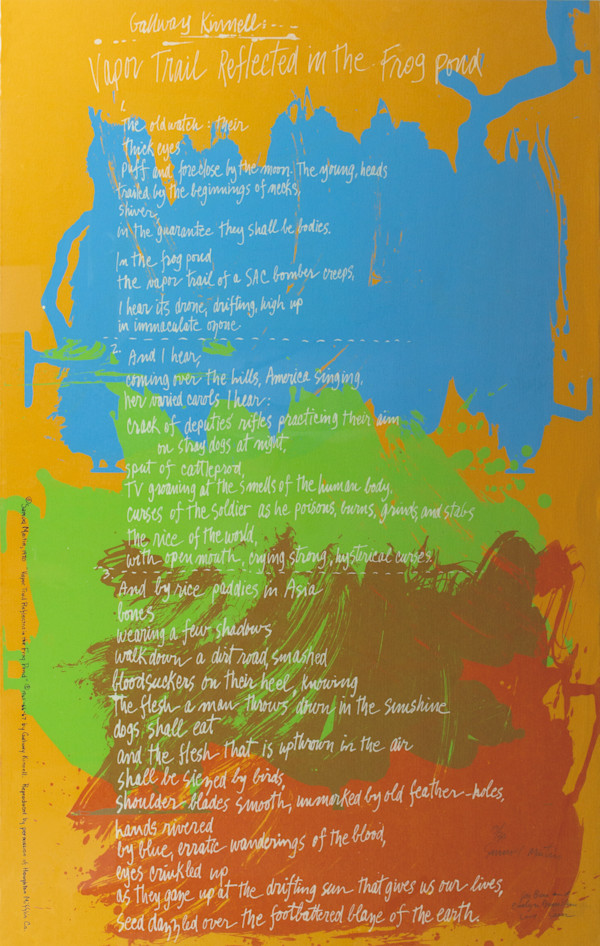 Galway Kinnell:---
Vapor Trail Reflected in the Frog pond
1.
The old watch: their
thick eyes
puff and foreclose by the moon. The young, heads
trailed by the beginnings of necks,
shiver,
in the guarantee they shall be bodies.
In the frog pond
the vapor trail of a SAC bomber creeps,
I hear its drone, drifting, high up
in immaculate ozone.
2. And I hear,
coming over the hills, America singing,
her varied carols I hear:
crack of deputies' rifles practicing their aim
on stray dogs at night,
sput of cattleprod,
TV groaning at the smells of the human body,
curses of the soldier as he poisons, burns, grinds, and stabs
the rice of the world,
with open mouth, crying strong, hysterical curses.
3. And by rice paddies in Asia
bones
wearing a few shadows
walk down a dirt road, smashed
bloodsuckers on their heel, knowing
The flesh a man throws down in the sunshine
dogs shall eat
and the flesh that is upthrown in the air
shall be siezed by birds,
shoulder blades smooth, unmarked by old feather-holes,
hands rivered
by blue, erratic wanderings of the blood,
eyes crinkled up
as they gaze up at the drifting sun that gives us our lives,
seed dazzled over the footbattered blaze of the earth.
Vapor Trail Reflected in the Frog Pond © by Galway Kinnell. Reproduced by permission of Houghton Mifflin Co.